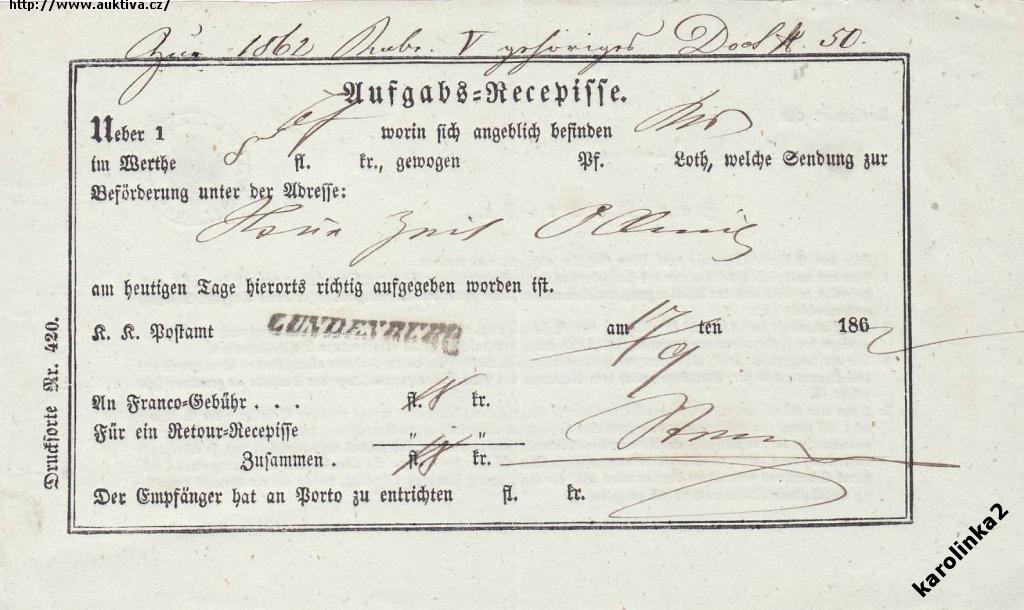 http://www.auktiva.cz/
Zur 1862 Rubr. V gehöriges Doc. 50.
Aufgabs-Recepisse.
Ueber 1 worin sich angeblich befinden
im Werthe 8 fl. kr., gewogen Pf. Loth, welche Sendung zur
Beförderung unter der Adresse:
am heutigen Tage hierorts richtig aufgegeben worden ist.
K. K. Postamt LUNDENBERG am 17/9 ten 1862
An Franco-Gebühr . . . fl. 18 kr.
Für ein Retour-Recepisse „ „
Zusammen . fl. 18 kr.
Der Empfänger hat an Porto zu entrichten fl. kr.
Drucksorte Nr. 420.
karolinka2